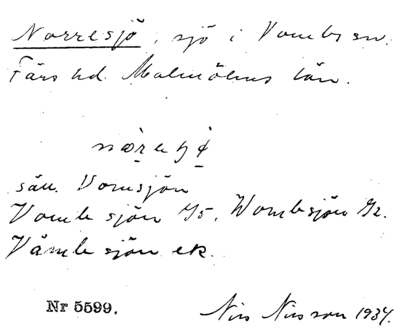 Norresjö, sjö i Vombs sn.
Färs hd. Malmöhus län.
säu. Vomsjön
Vombsjön 45, Wombsjön 42.
Våmbsjön ek.
Nr 5599.
Nils Nilsson 1934.